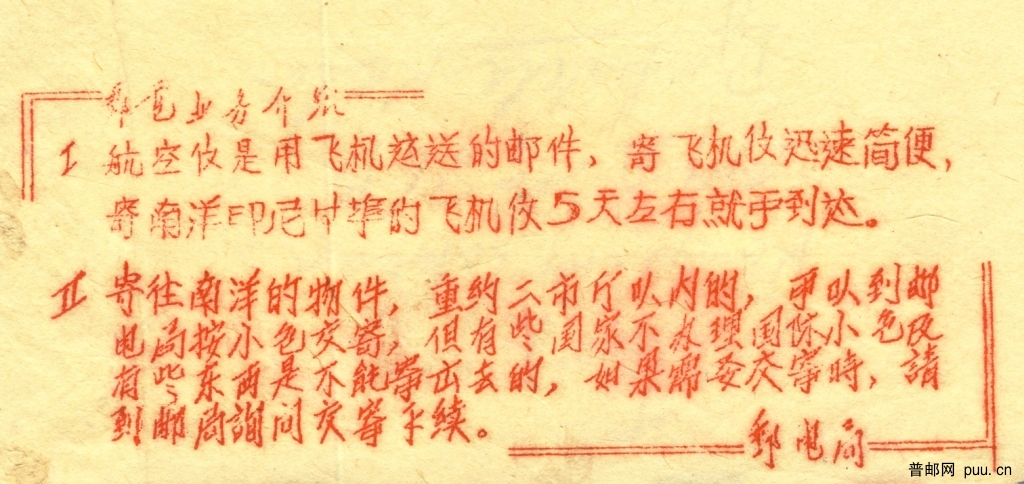 郵电业务介绍
I 航空信是用飞机运送的邮件，寄飞机信迅速简便，
寄南洋印尼 的飞机信5天左右就可到达。
II 寄往南洋的物件，重约二市斤以内的，可以到邮
电局按小包交寄，但有些国家不办理国际小包及
有些东西是不能寄出去的，如果需要交寄時，請
到邮局詢问交寄手续。
郵电局
普邮网 puu.cn